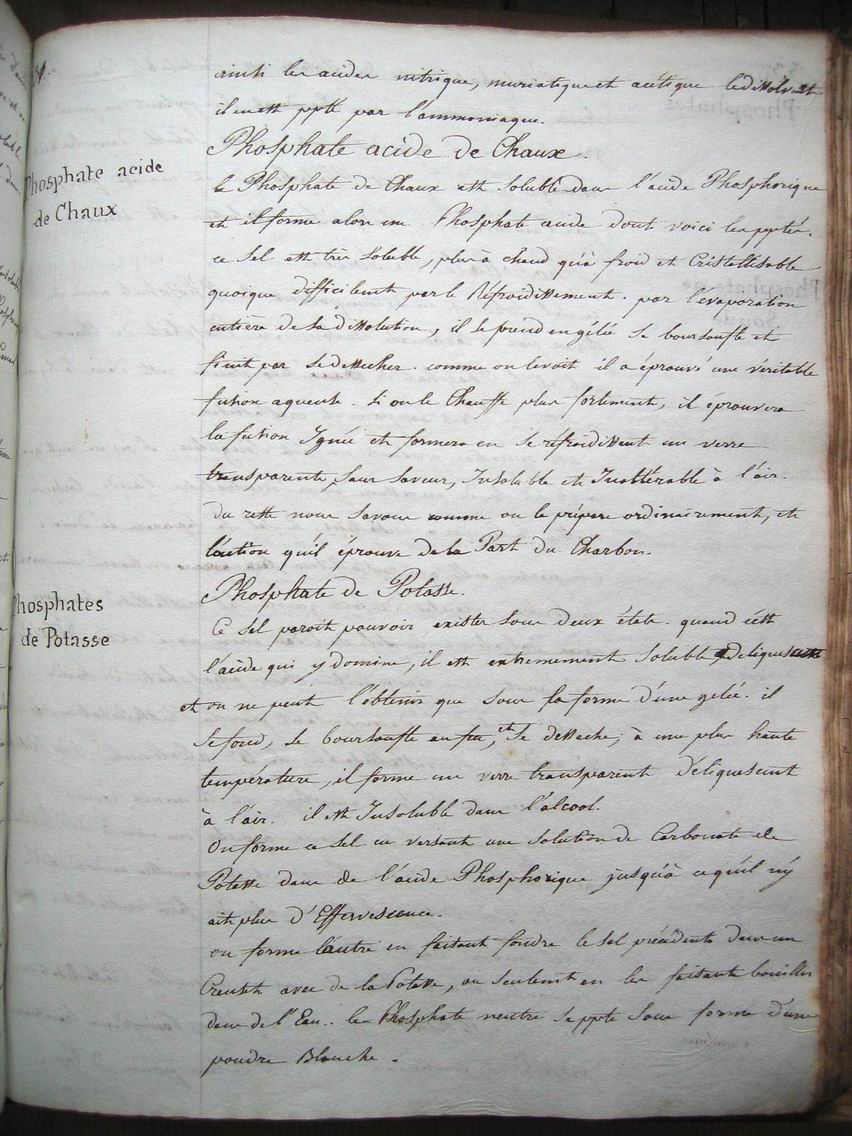 ainsi les acides nitrique, muriatique et acétique le dissolvent
il en est ppté par l'ammoniaque.
Phosphate acide de Chaux.
Phosphate acide
de Chaux
le Phosphate de Chaux est soluble dans l'acide Phosphorique
et il forme alors un Phosphate acide dont voici les pptés.
ce sel est très soluble, plus à chaud qu'à froid et Cristallisable
quoique difficilent par le Réfroidissement. par l'evaporation
entière de sa dissolution, il se prend en gélée se boursoufle et
finit par se dessecher. comme on le voit il a éprouvé une véritable
fusion aqueuse. si on le Chauffe plus fortement, il éprouvera
la fusion Ignée et formera en se réfroidissant un verre
transparent, sans saveur, Insoluble et Inaltérable à l'air.
du reste nous savons comme on le prépare ordinairement, et
l'action qu'il éprouve de la Part du Charbon.
Phosphate de Potasse.
Phosphates
de Potasse
Ce sel paroit pouvoir exister sous deux états. quand c'est
l'acide qui y domine, il est extremement soluble, Deliquescent
et on ne peut l'obtenir que sous la forme d'une gelée. il
se fond, se boursoufle au feu, et se desseche, à une plus haute
température, il forme un verre transparent Déliquescent
à l'air. il est Insoluble dans l'alcool.
On forme ce sel en versant une solution de Carbonate de
Potasse dans de l'acide Phosphorique jusqu'à ce qu'il n'y
ait plus d'Effervescence.
on forme l'autre en faisant fondre le sel précédent dans un
Creuset avec de la Potasse, ou seulement en les faisant bouillir
dans de l'Eau. le Phosphate neutre se ppte sous forme d'une
poudre Blanche.